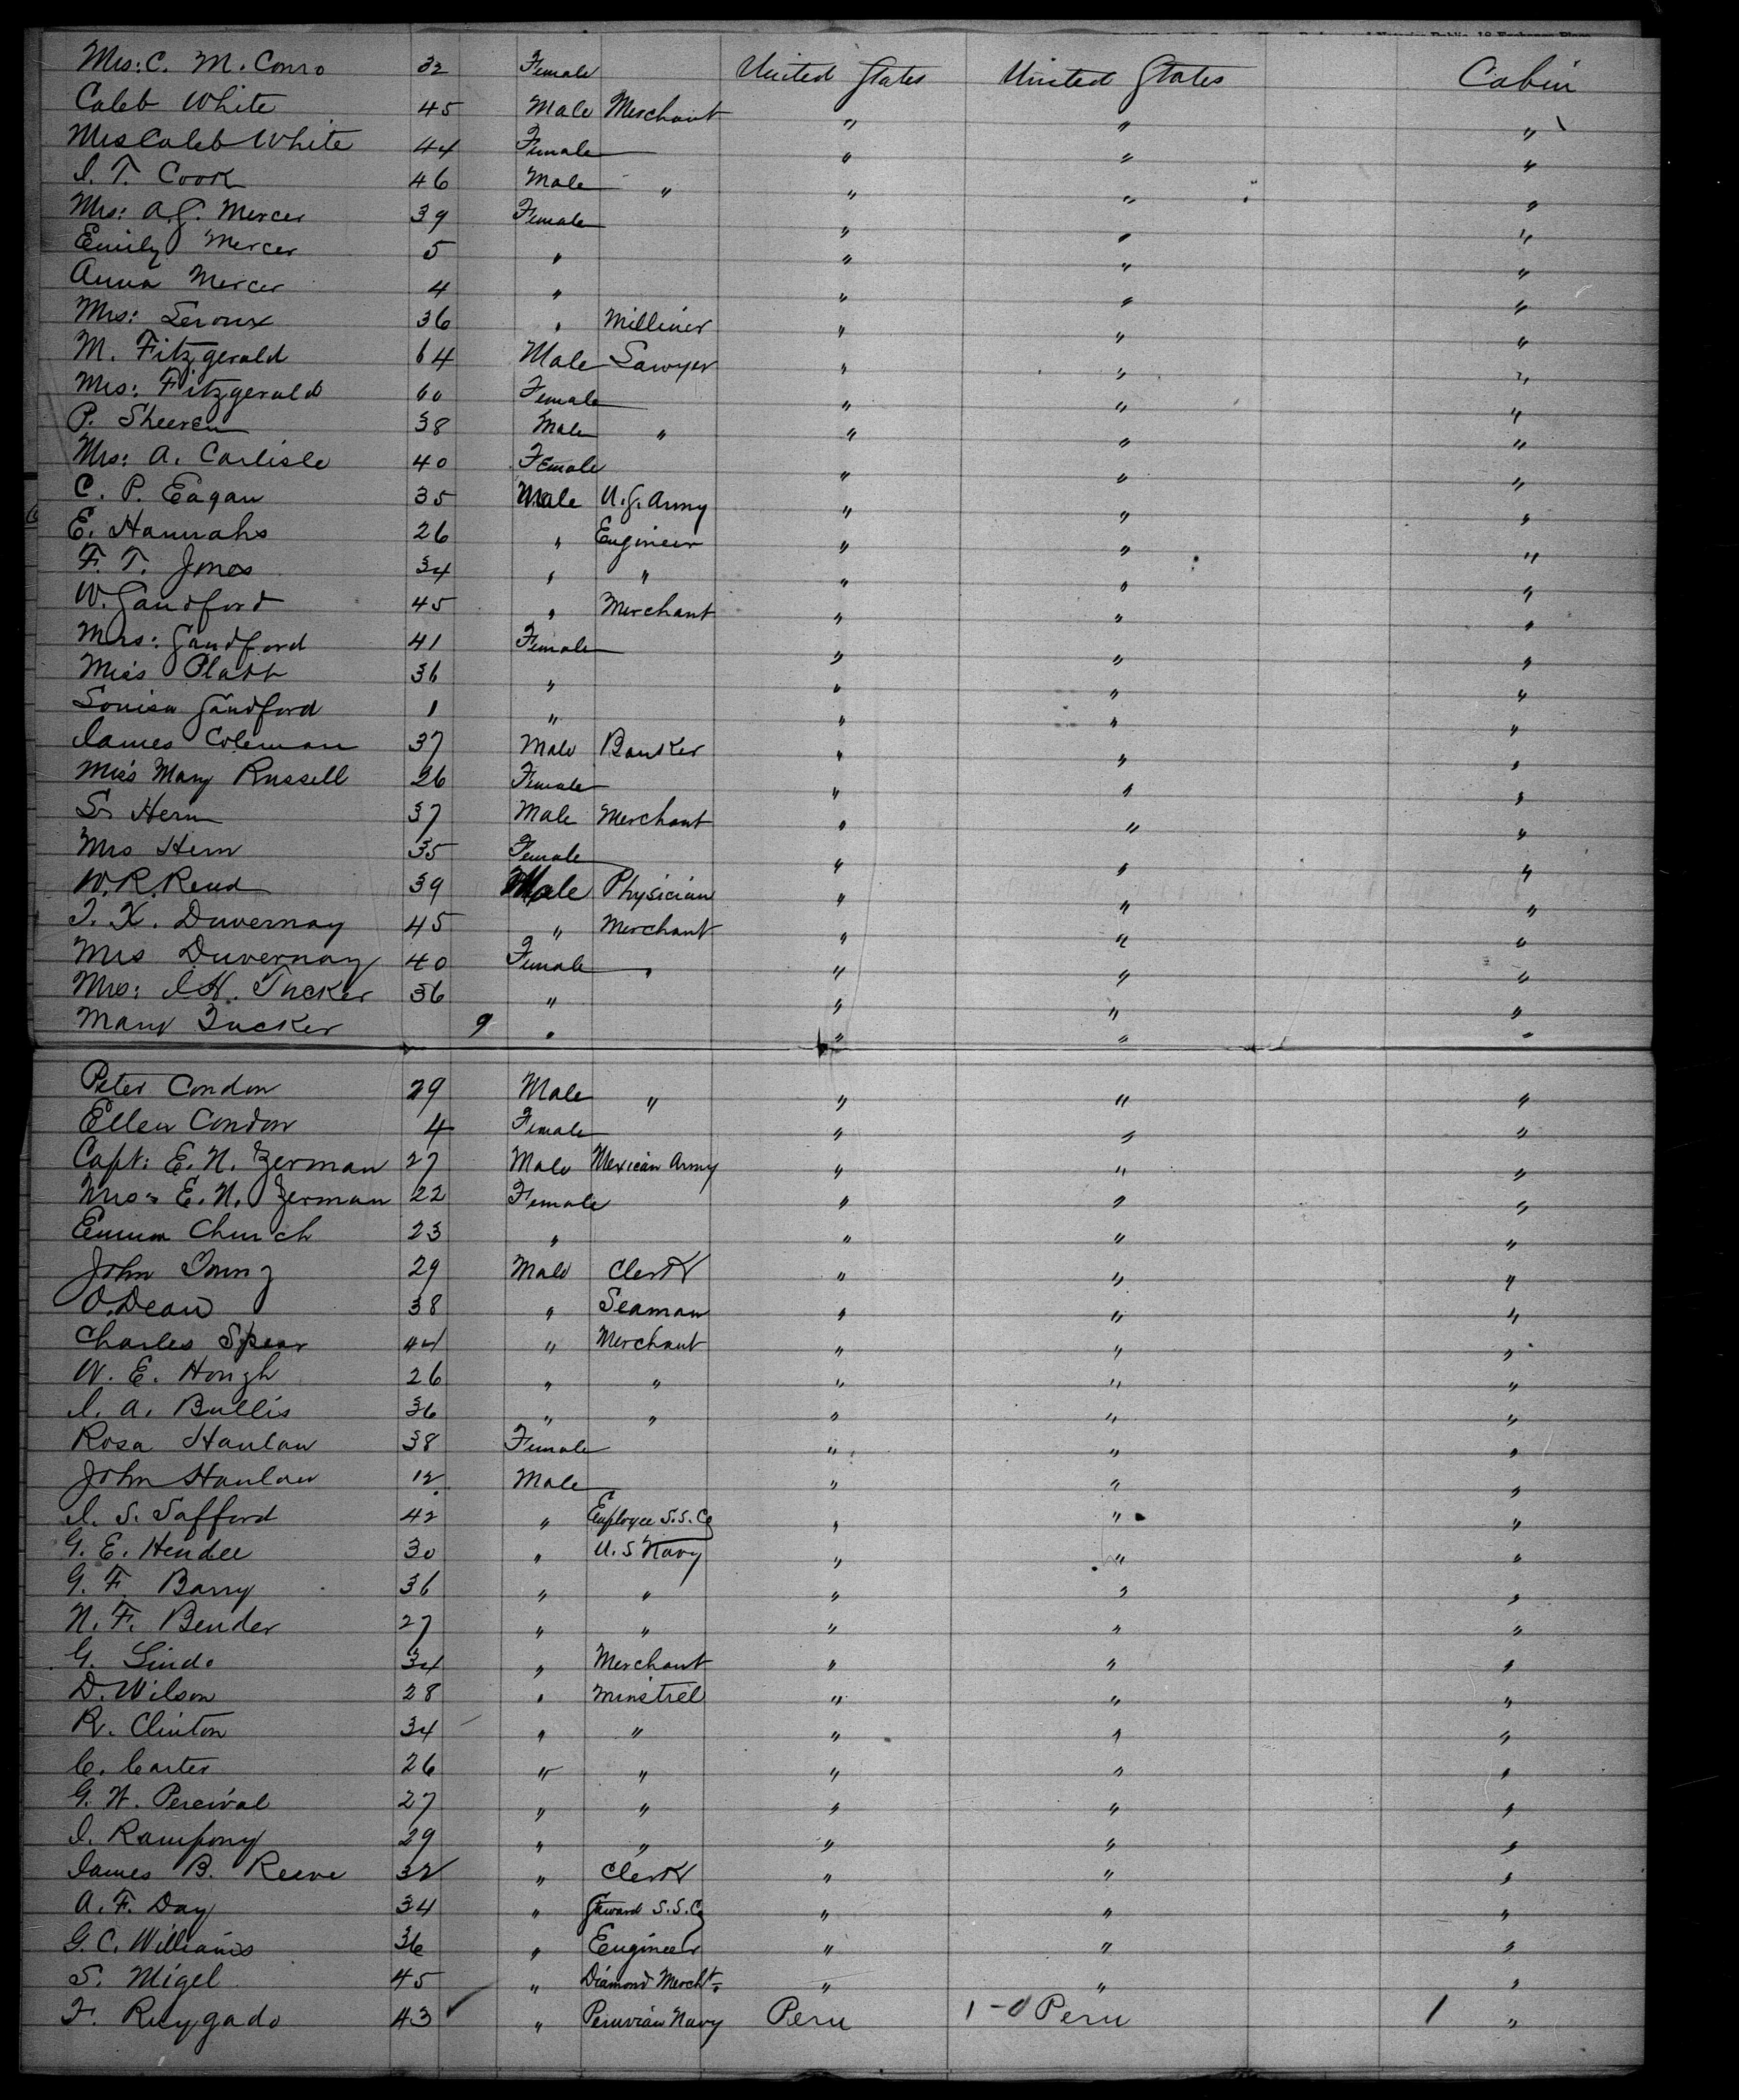 Mrs: C. M. Conro 32 Female United States United States Cabin
Caleb White 45 Male Merchant " " "
Mrs Caleb White 44 Female " " "
I. T. Cook 46 Male " " " "
Mrs: A. J. Mercer 39 Female " " "
Emily Mercer 5 " " " "
Anna Mercer 4 " " " "
Mrs: Leroux 36 " Milliner " " "
M. Fitzgerald 64 Male Lawyer " " "
Mrs: Fitzgerald 60 Female " " "
P. Sheeren 38 Male " " " "
Mrs: A. Carlisle 40 Female " " "
C. P. Eagan 35 Male U.S. Army " " "
E. Hannahs 26 " Engineer " " "
F. T. Jones 34 " " " " "
W. Sandford 45 " Merchant " " "
Mrs: Sandford 41 Female " " "
Miss Platt 36 " " " "
Louisa Sandford 1 " " " "
James Coleman 37 Male Banker " " "
Miss Mary Russell 26 Female " " "
S. Hern 37 Male Merchant " " "
Mrs Hern 35 Female " " "
W. R. Rend 39 Male Physician " " "
T. K. Duvernay 45 " Merchant " " "
Mrs Duvernay 40 Female " " " "
Mrs: I. H. Tucker 36 " " " "
Mary Tucker 9 " " " "
Peter Condon 29 Male " " " "
Ellen Condon 4 Female " " "
Capt: E. N. Zerman 27 Male Mexican Army " " "
Mrs: E. N. Zerman 22 Female " " "
Emma Church 23 " " " "
John Young 29 Male Clerk " " "
O. Dean 38 " Seaman " " "
Charles Spear 44 " Merchant " " "
W. E. Hough 26 " " " " "
I. A. Bullis 36 " " " " "
Rosa Hanlan 38 Female " " "
John Hanlan 12 Male " " "
I. S. Safford 42 " Employee S.S. Co " " "
G. E. Hendee 30 " U.S Navy " " "
G. F. Barry 36 " " " " "
N. F. Bender 27 " " " " "
G. Lindo 34 " Merchant " " "
D. Wilson 28 " Minstrel " " "
R. Clinton 34 " " " " "
C. Carter 26 " " " " "
G. W. Percival 27 " " " " "
I. Rampony 29 " " " " "
James B. Reeve 32 " Clerk " " "
A. F. Day 34 " Steward S.S. Co " " "
G. C. Williams 36 " Engineer " " "
S. Migel 45 " Diamond Mercht. " " "
F. Reygado 43 " Peruvian Navy Peru 1-0 Peru 1 "